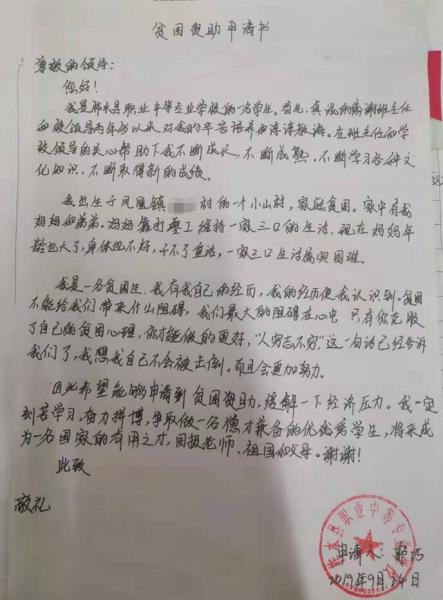 贫困资助申请书
尊敬的领导:
您好!
我是柞水县职业中等专业学校的一名学生。首先,真诚的感谢班主任
和校领导两年多以来对我的辛苦培养和谆谆教诲。在班主任和学
校领导的关心帮助下我不断成长,不断成熟,不断学习各种文
化知识,不断取得新的成绩。
我出生于凤凰镇 村的一个小山村,家庭贫困。家中有我
妈妈和弟弟。妈妈靠打零工维持一家三口的生活,现在妈妈年
龄也大了,身体也不好,干不了重活,一家三口生活属实困难。
我是一名贫困生,我有我自己的经历,我的经历使我认识到:贫困
不能给我们带来什么阻碍,我们最大的阻碍在心中,只有你克服
了自己的贫困心理,你才能做的更好,“人穷志不穷”这一句话已经告诉
我们了,我想我自己不会被击倒。而且会更加努力。
因此希望能够申请到贫困资助,缓解一下经济压力。我一定
刻苦学习,奋力拼搏,争取做一名德才兼备的优秀学生,将来成
为一名国家的有用之才,回报老师、祖国和父母。谢谢!
此致
敬礼
柞水县职业中等专业学校
申请人:
2019年9月24日